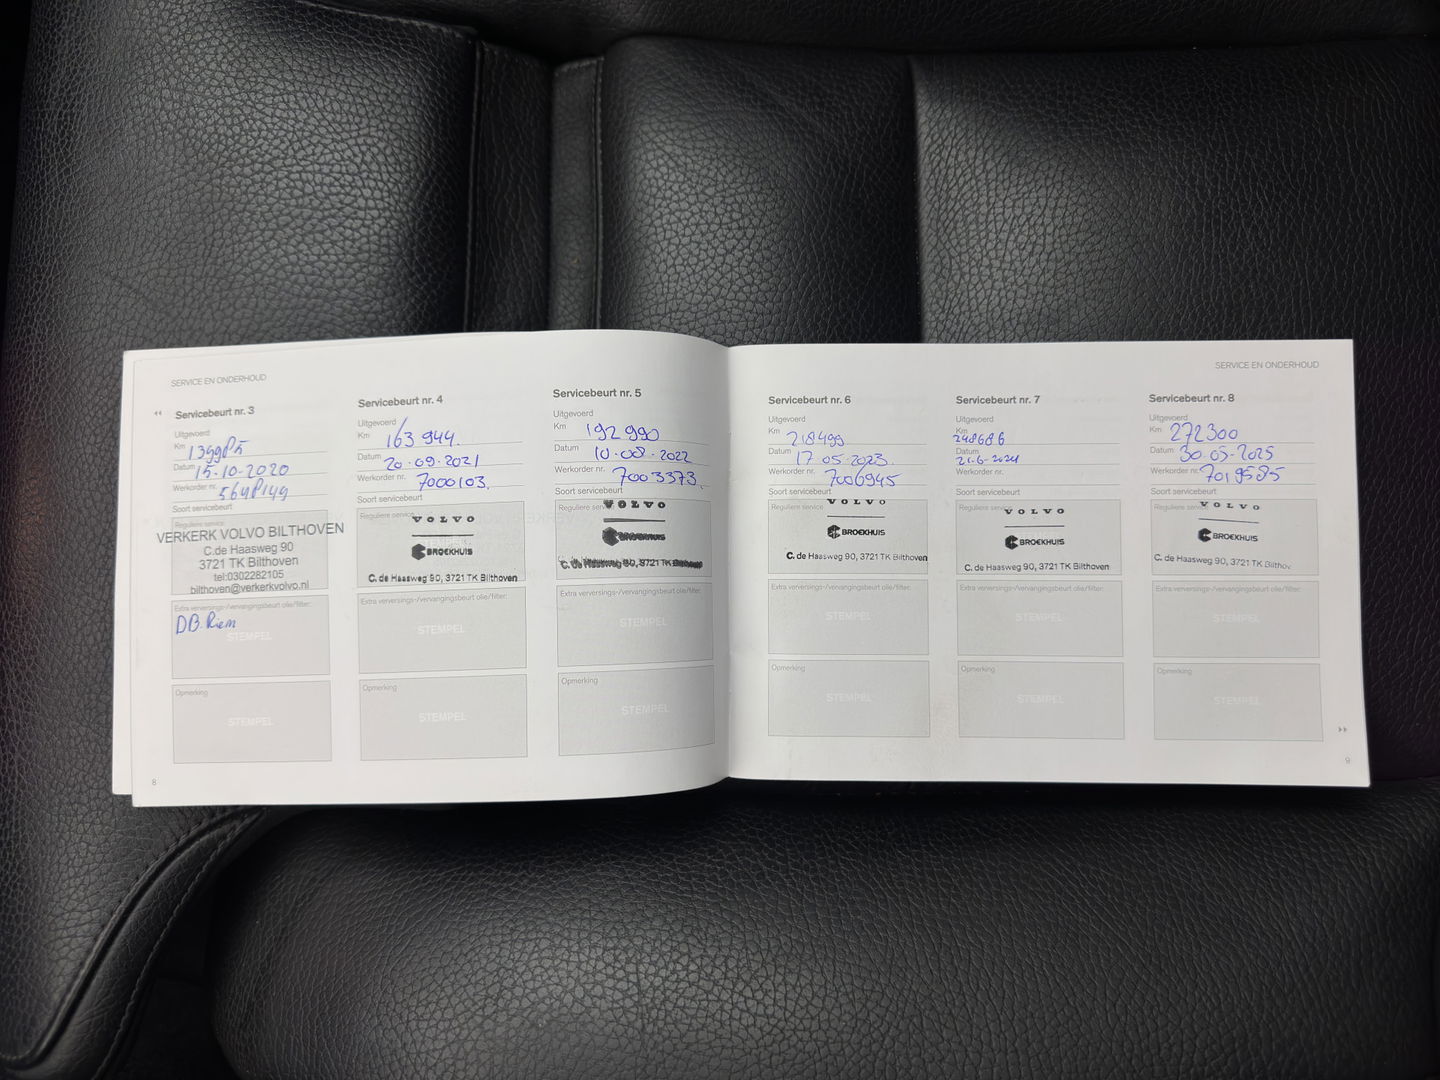 SERVICE EN ONDERHOUD
Servicebeurt nr. 3
Uitgevoerd
Km 139985
Datum 15-10-2020
Werkorder nr.
Soort servicebeurt
Reguliere service
VERKERK VOLVO BILTHOVEN
C.de Haasweg 90
3721 TK Bilthoven
tel:0302282105
bilthoven@verkerkvolvo.nl
Extra verversings-/vervangingsbeurt olie/filter:
DB. Riem
STEMPEL
Opmerking
STEMPEL
8
Servicebeurt nr. 4
Uitgevoerd
Km 163 944.
Datum 20-09-2021
Werkorder nr. 7000103.
Soort servicebeurt
Reguliere service
VOLVO
BROEKHUIS
C. de Haasweg 90, 3721 TK Bilthoven
Extra verversings-/vervangingsbeurt olie/filter:
STEMPEL
Opmerking
STEMPEL
Servicebeurt nr. 5
Uitgevoerd
Km 192 990
Datum 10-08-2022
Werkorder nr. 7003373.
Soort servicebeurt
Reguliere service
VOLVO
BROEKHUIS
C. de Haasweg 90, 3721 TK Bilthoven
Extra verversings-/vervangingsbeurt olie/filter:
STEMPEL
Opmerking
STEMPEL
SERVICE EN ONDERHOUD
Servicebeurt nr. 6
Uitgevoerd
Km 218499
Datum 17-05-2023.
Werkorder nr. 7006945
Soort servicebeurt
Reguliere service
VOLVO
BROEKHUIS
C. de Haasweg 90, 3721 TK Bilthoven
Extra verversings-/vervangingsbeurt olie/filter:
STEMPEL
Opmerking
STEMPEL
Servicebeurt nr. 7
Uitgevoerd
Km 248686
Datum 21-6-2024
Werkorder nr.
Soort servicebeurt
Reguliere service
VOLVO
BROEKHUIS
C. de Haasweg 90, 3721 TK Bilthoven
Extra verversings-/vervangingsbeurt olie/filter:
STEMPEL
Opmerking
STEMPEL
Servicebeurt nr. 8
Uitgevoerd
Km 272300
Datum 30-05-2025
Werkorder nr. 7019585
Soort servicebeurt
Reguliere service
VOLVO
BROEKHUIS
C. de Haasweg 90, 3721 TK Bilthov
Extra verversings-/vervangingsbeurt olie/filter:
STEMPEL
Opmerking
STEMPEL
9